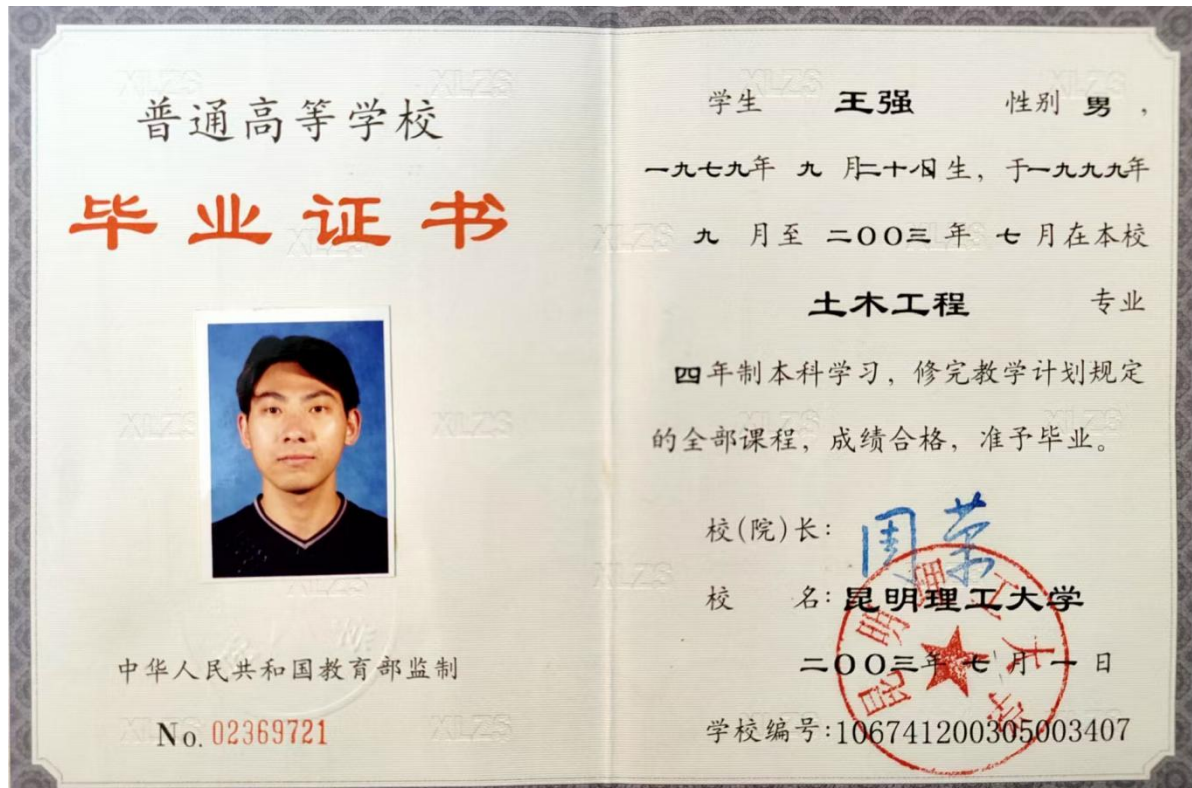 普通高等学校
毕业证书
中华人民共和国教育部监制
No. 02369721
学生 王强 性别 男,
一九七九年 九 月二十八日生, 于一九九九年
九 月至 二〇〇三 年 七 月在本校
土木工程 专业
四年制本科学习, 修完教学计划规定
的全部课程, 成绩合格, 准予毕业。
校(院)长: 周荣
校 名: 昆明理工大学
二〇〇三年 七 月 一 日
学校编号:106741200305003407
昆明理工大学
XLZS